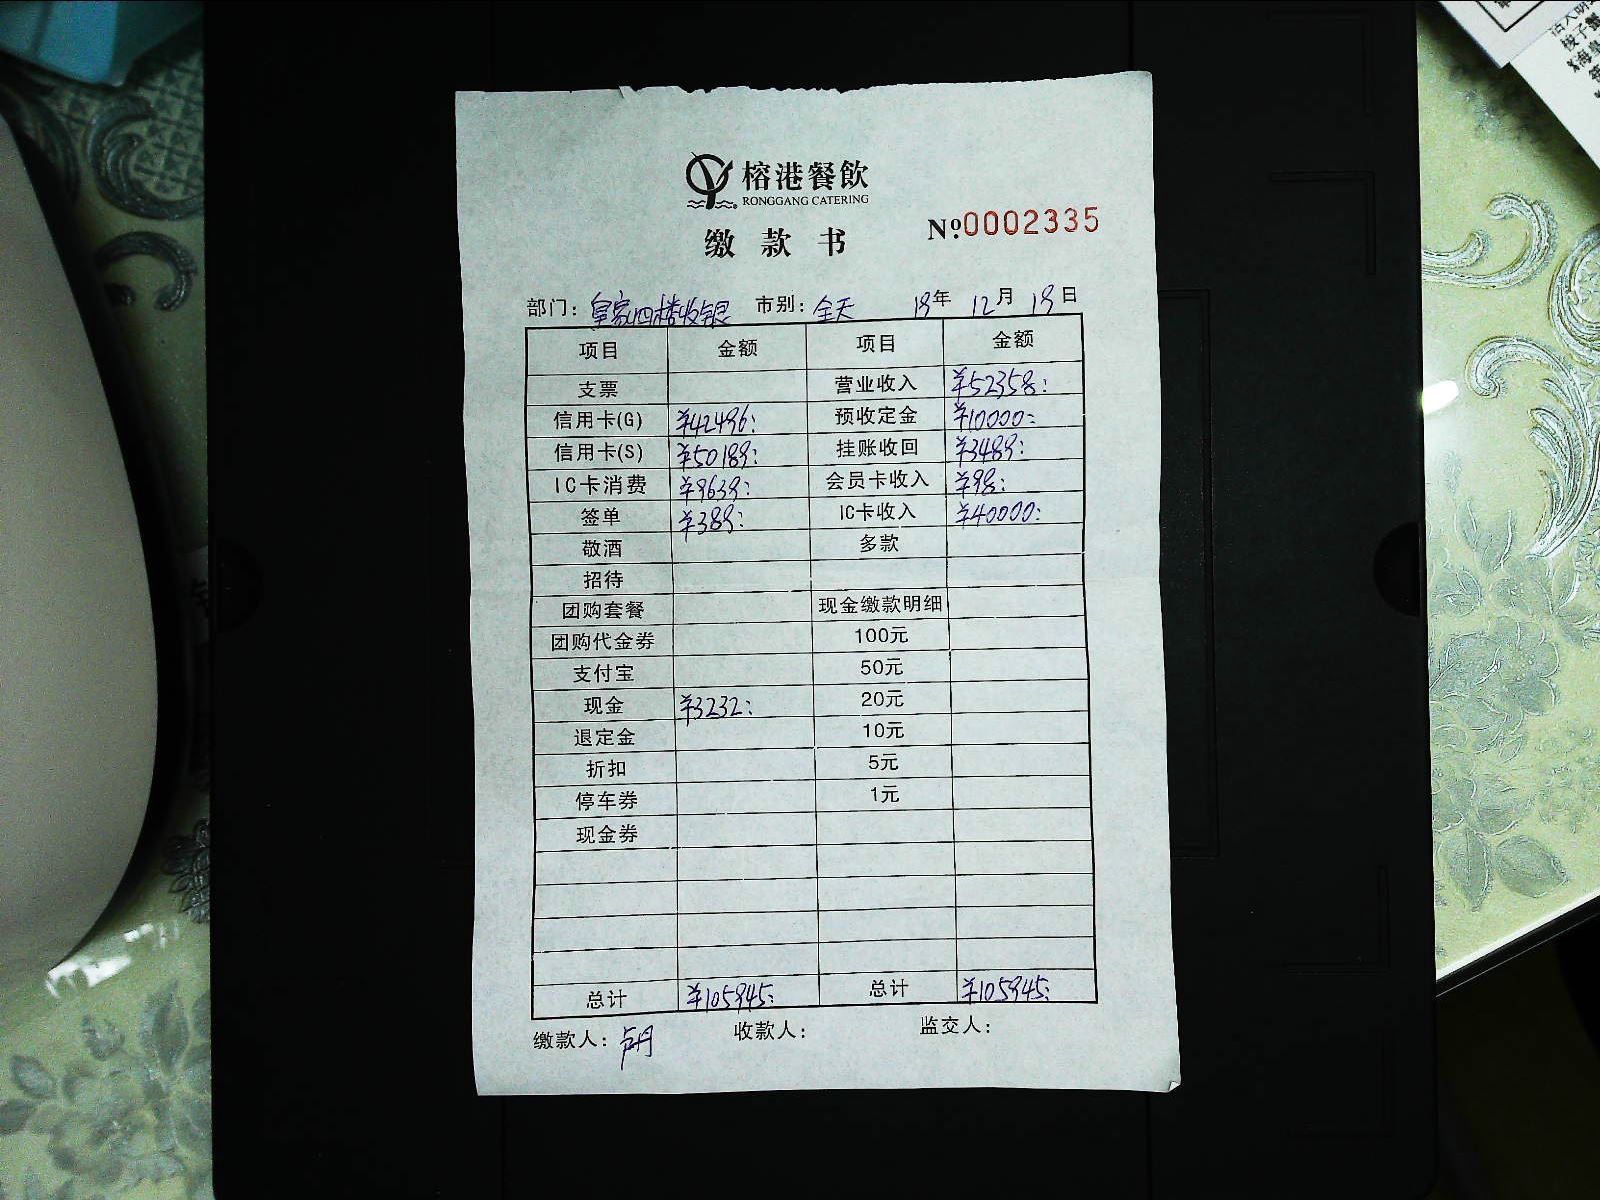 榕港餐飲
RONGGANG CATERING
缴款书
Nº.0002335
部门：皇家四楼收银 市别：全天 19年 12月 19日
项目 金额 项目 金额
支票 营业收入 ¥52358：
信用卡(G) ¥42496： 预收定金 ¥10000：
信用卡(S) ¥50189： 挂账收回 ¥3489：
IC卡消费 ¥9639： 会员卡收入 ¥98：
签单 ¥389： IC卡收入 ¥40000：
敬酒 多款
招待
团购套餐 现金缴款明细
团购代金券 100元
支付宝 50元
现金 ¥3232： 20元
退定金 10元
折扣 5元
停车券 1元
现金券
总计 ¥105945： 总计 ¥105945：
缴款人： 收款人： 监交人：